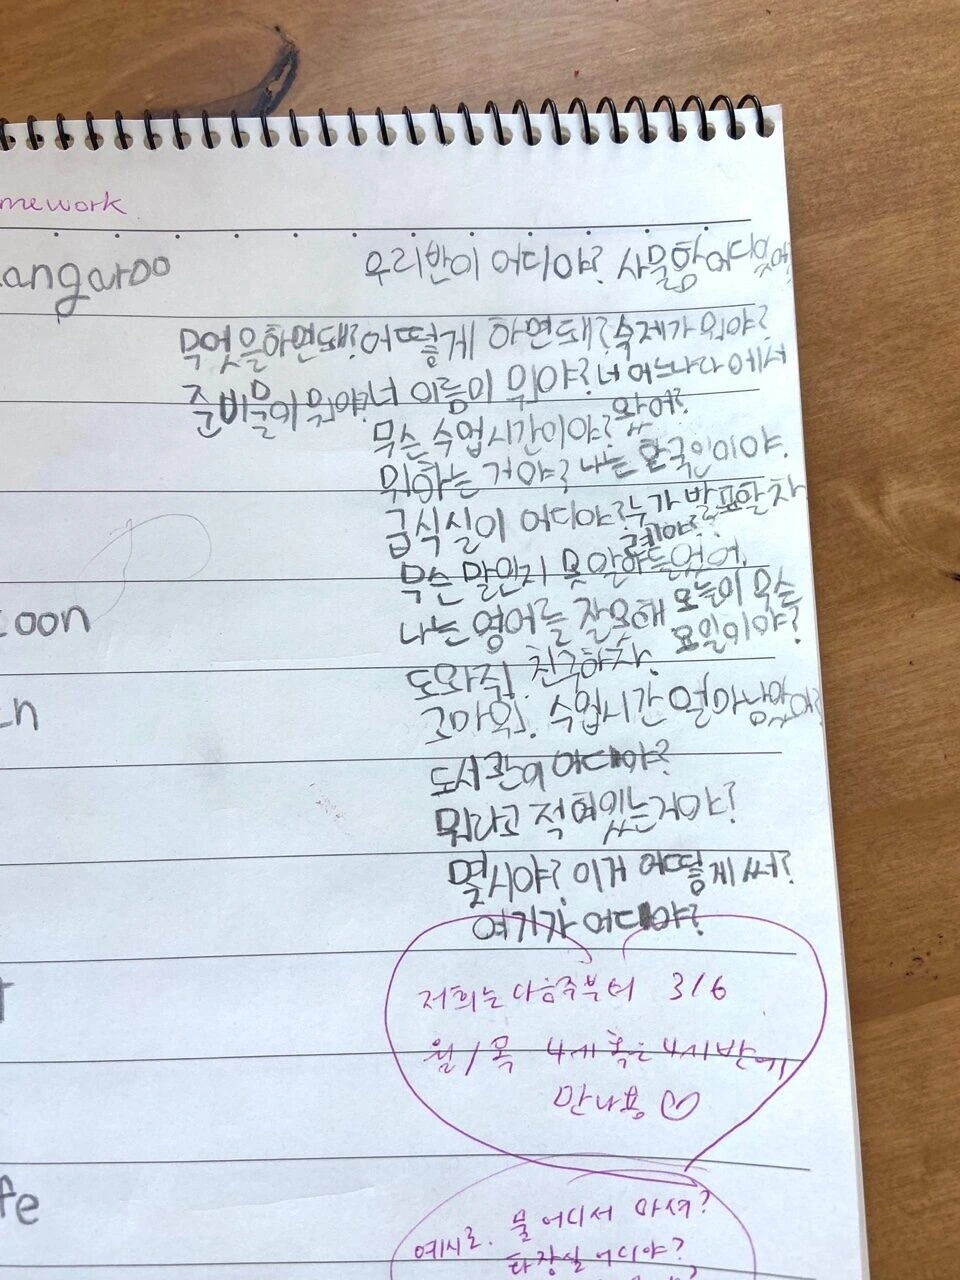 mework
angaroo
우리반이 어디야? 사물함 어디있어?
무엇을하면돼? 어떻게 하면돼? 숙제가 뭐야?
준비물이 뭐야? 너 이름이 뭐야? 너 어느나라에서
왔어?
무슨 수업시간이야?
뭐하는 거야? 나는 한국인이야.
급식실이 어디야? 누가 발표할차
례야?
무슨 말인지 못 알아들었어.
oon
나는 영어를 잘못해 오늘이 무슨
요일이야?
도와줘. 친구하자.
n
고마워. 수업시간 얼마나남았어?
도서관이 어디야?
뭐라고 적혀있는거야?
몇시야? 이거 어떻게 써?
여기가 어디야?
저희는 다음주부터 3/6
월/목 4시 혹은 4시반에
만나용♡
fe
예시로. 물 어디서 마셔?
화장실 어디야?